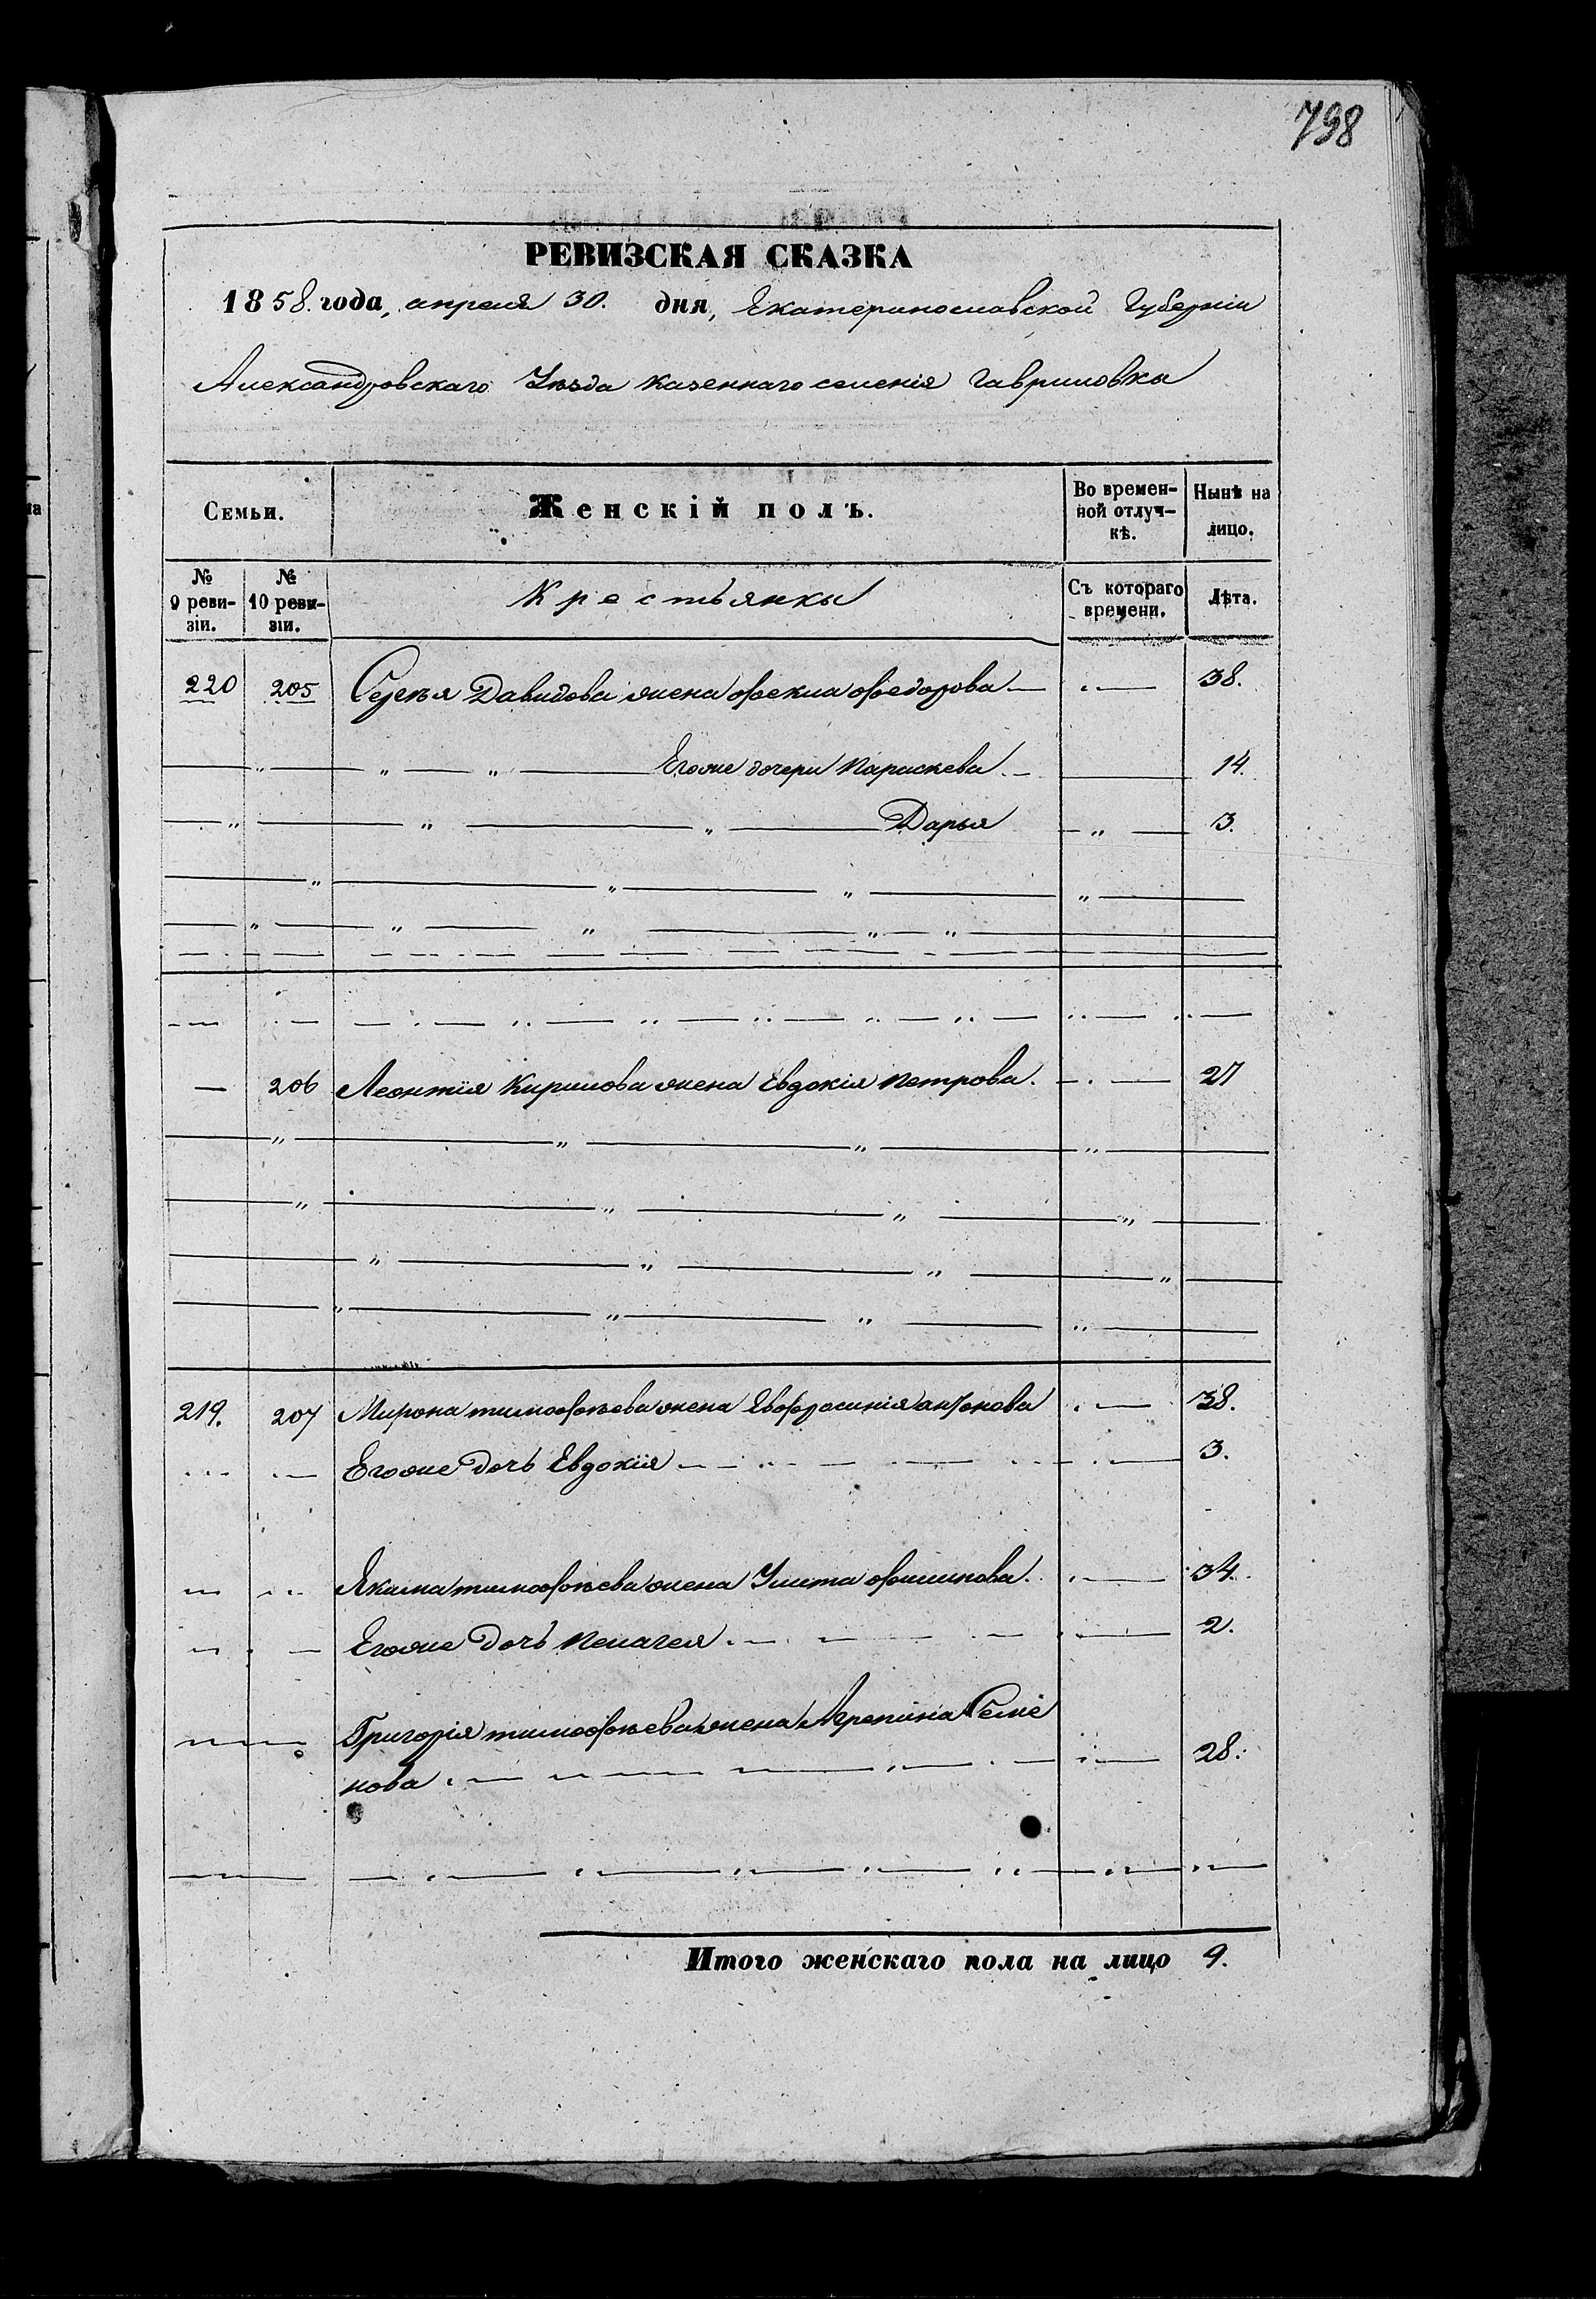 798
РЕВИЗСКАЯ СКАЗКА
1858. года, апреля 30. дня, Екатеринославской Губерніи
Александровскаго Уѣзда казеннаго селенія Гавриловки
Семьи. Женскій полъ. Во времен- Нынѣ на
ной отлуч- лицо.
кѣ.
№ № Крестьянки Съ котораго Лѣта.
9 реви- 10 реви- времени.
зіи. зіи.
220 205 Сергѣя Давидова жена Фекла Федорова 38.
Егоже дочери Параскева 14.
Дарья 3.
206 Леонтія Кирилова жена Евдокія Петрова. 27
219. 207 Мирона тимофѣева жена Евфросинія антонова 38.
Егоже дочь Евдокія 3.
Якима тимофѣева жена Улита филипова. 34.
Егоже дочь Пелагея 2.
Григорія тимофѣева жена Агрепина Семе
нова 28.
Итого женскаго пола на лицо 9.